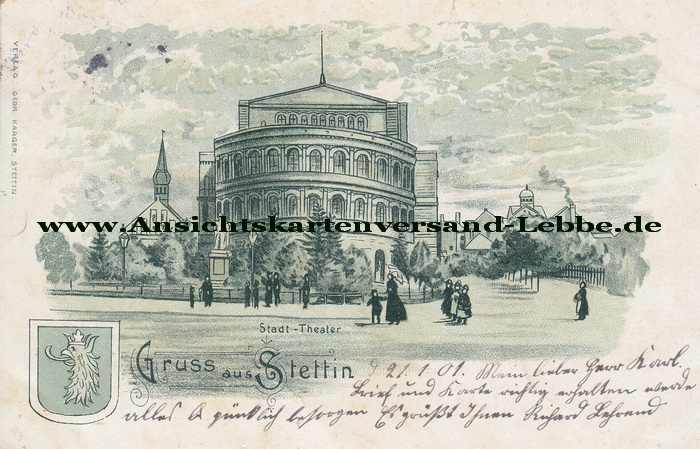 VERLAG GEBR. KARGER, STETTIN
www.Ansichtskartenversand-Lebbe.de
Stadt-Theater
Gruss aus Stettin
d 21.1.01. Mein lieber Herr Karl.
Brief und Karte richtig erhalten werde
alles pünklich besorgen Es grüßt Ihnen Richard Behrend